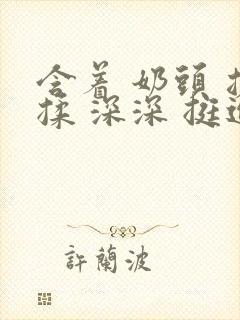 含着 奶頭
揉 深深 挺
許蘭波